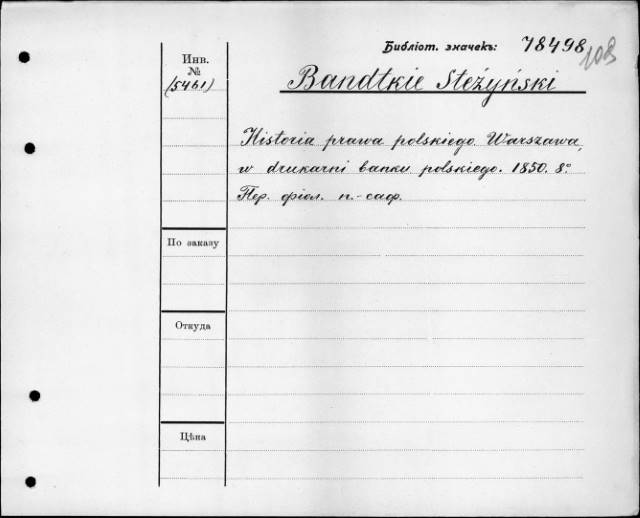 Библіот. значекъ: 78498
108
Инв.
№
(5461)
Bandtkie Steżyński
Historia prawa polskiego. Warszawa,
w drukarni banku polskiego. 1850. 8º.
Пер. фіол. п.-саф.
По заказу
Откуда
Цѣна